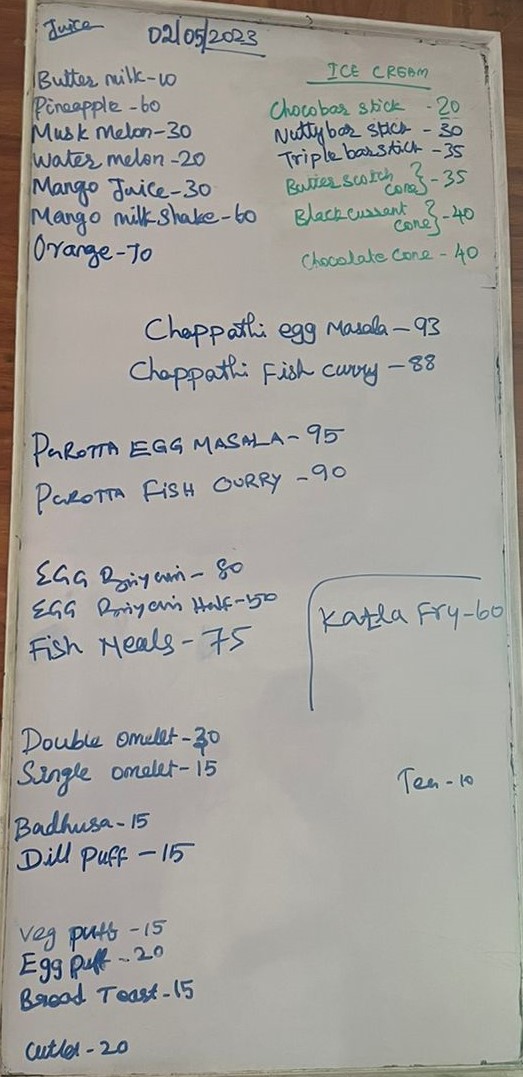 Juice
02/05/2023
Butter milk-10
Pineapple -60
Musk Melon-30
Water melon -20
Mango Juice-30
Mango milk shake-60
Orange-70
ICE CREAM
Chocobar stick -20
Nuttybar stick - 30
Triplebarstick -35
Butterscotch cone} -35
Blackcurrent cone} -40
Chocolate Cone - 40
Chappathi egg Masala - 93
Chappathi Fish curry - 88
PaROTTA EGG MASALA - 95
PaROTTA FiSH CURRY -90
EGG Briyani - 80
EGG Briyani Half-50
Fish Meals - 75
Katla Fry-60
Double omelet-30
Single omelet-15
Tea-10
Badhusa-15
Dill Puff -15
Veg puff -15
Egg puff -20
Bread Toast-15
Cutlet-20